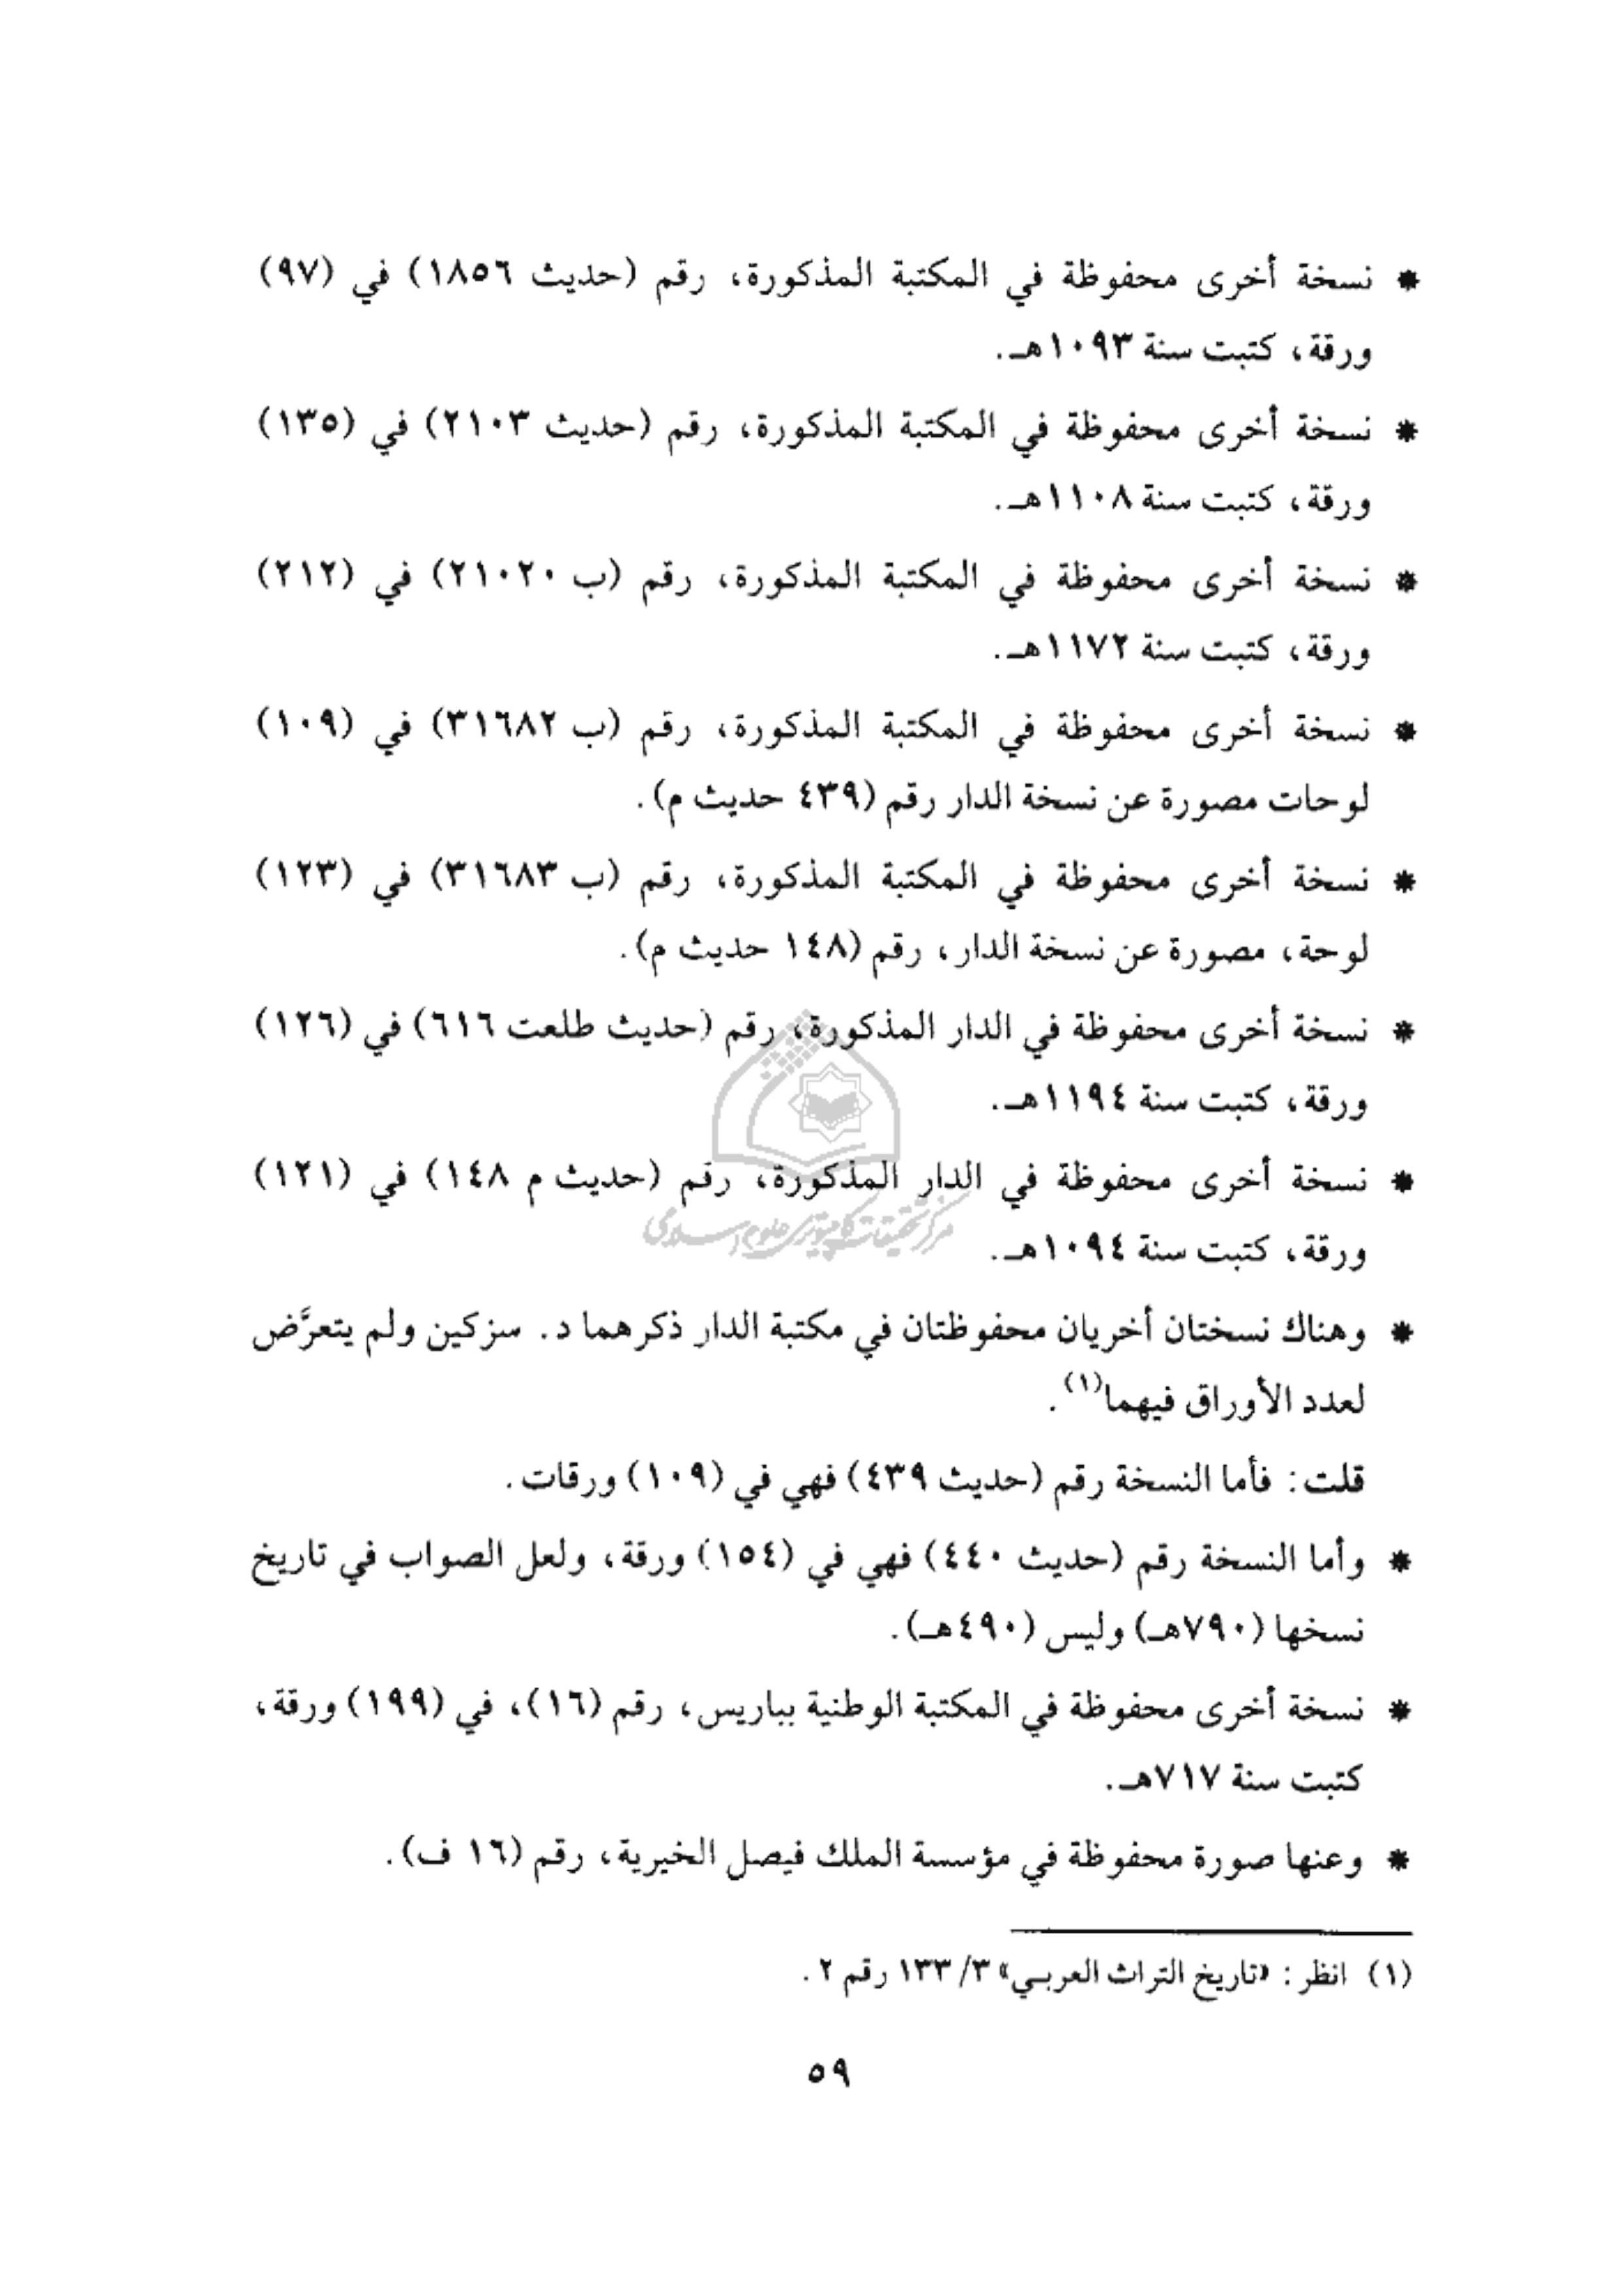 * نسخة أخرى محفوظة في المكتبة المذكورة، رقم (حديث ١٨٥٦) في (٩٧)
ورقة، كتبت سنة ١٠٩٣هـ.
* نسخة أخرى محفوظة في المكتبة المذكورة، رقم (حديث ٢١٠٣) في (١٣٥)
ورقة، كتبت سنة ١١٠٨هـ.
* نسخة أخرى محفوظة في المكتبة المذكورة، رقم (ب ٢١٠٢٠) في (٢١٢)
ورقة، كتبت سنة ١١٧٢هـ.
* نسخة أخرى محفوظة في المكتبة المذكورة، رقم (ب ٣١٦٨٢) في (١٠٩)
لوحات مصورة عن نسخة الدار رقم (٤٣٩ حديث م).
* نسخة أخرى محفوظة في المكتبة المذكورة، رقم (ب ٣١٦٨٣) في (١٢٣)
لوحة، مصورة عن نسخة الدار، رقم (١٤٨ حديث م).
* نسخة أخرى محفوظة في الدار المذكورة، رقم (حديث طلعت ٦١٦) في (١٢٦)
ورقة، كتبت سنة ١١٩٤هـ.
* نسخة أخرى محفوظة في الدار المذكورة، رقم (حديث م ١٤٨) في (١٢١)
مركز تحقيقات كامپيوتری علوم اسلامی
ورقة، كتبت سنة ١٠٩٤هـ.
* وهناك نسختان أخريان محفوظتان في مكتبة الدار ذكرهما د. سزكين ولم يتعرَّض
لعدد الأوراق فيهما(١).
قلت: فأما النسخة رقم (حديث ٤٣٩) فهي في (١٠٩) ورقات.
* وأما النسخة رقم (حديث ٤٤٠) فهي في (١٥٤) ورقة، ولعل الصواب في تاريخ
نسخها (٧٩٠هـ) وليس (٤٩٠هـ).
* نسخة أخرى محفوظة في المكتبة الوطنية بباريس، رقم (١٦)، في (١٩٩) ورقة،
كتبت سنة ٧١٧هـ.
* وعنها صورة محفوظة في مؤسسة الملك فيصل الخيرية، رقم (١٦ ف).
(١) انظر: «تاريخ التراث العربي» ٣/ ١٣٣ رقم ٢.
٥٩